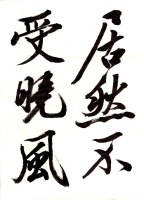 居然不
受曉風